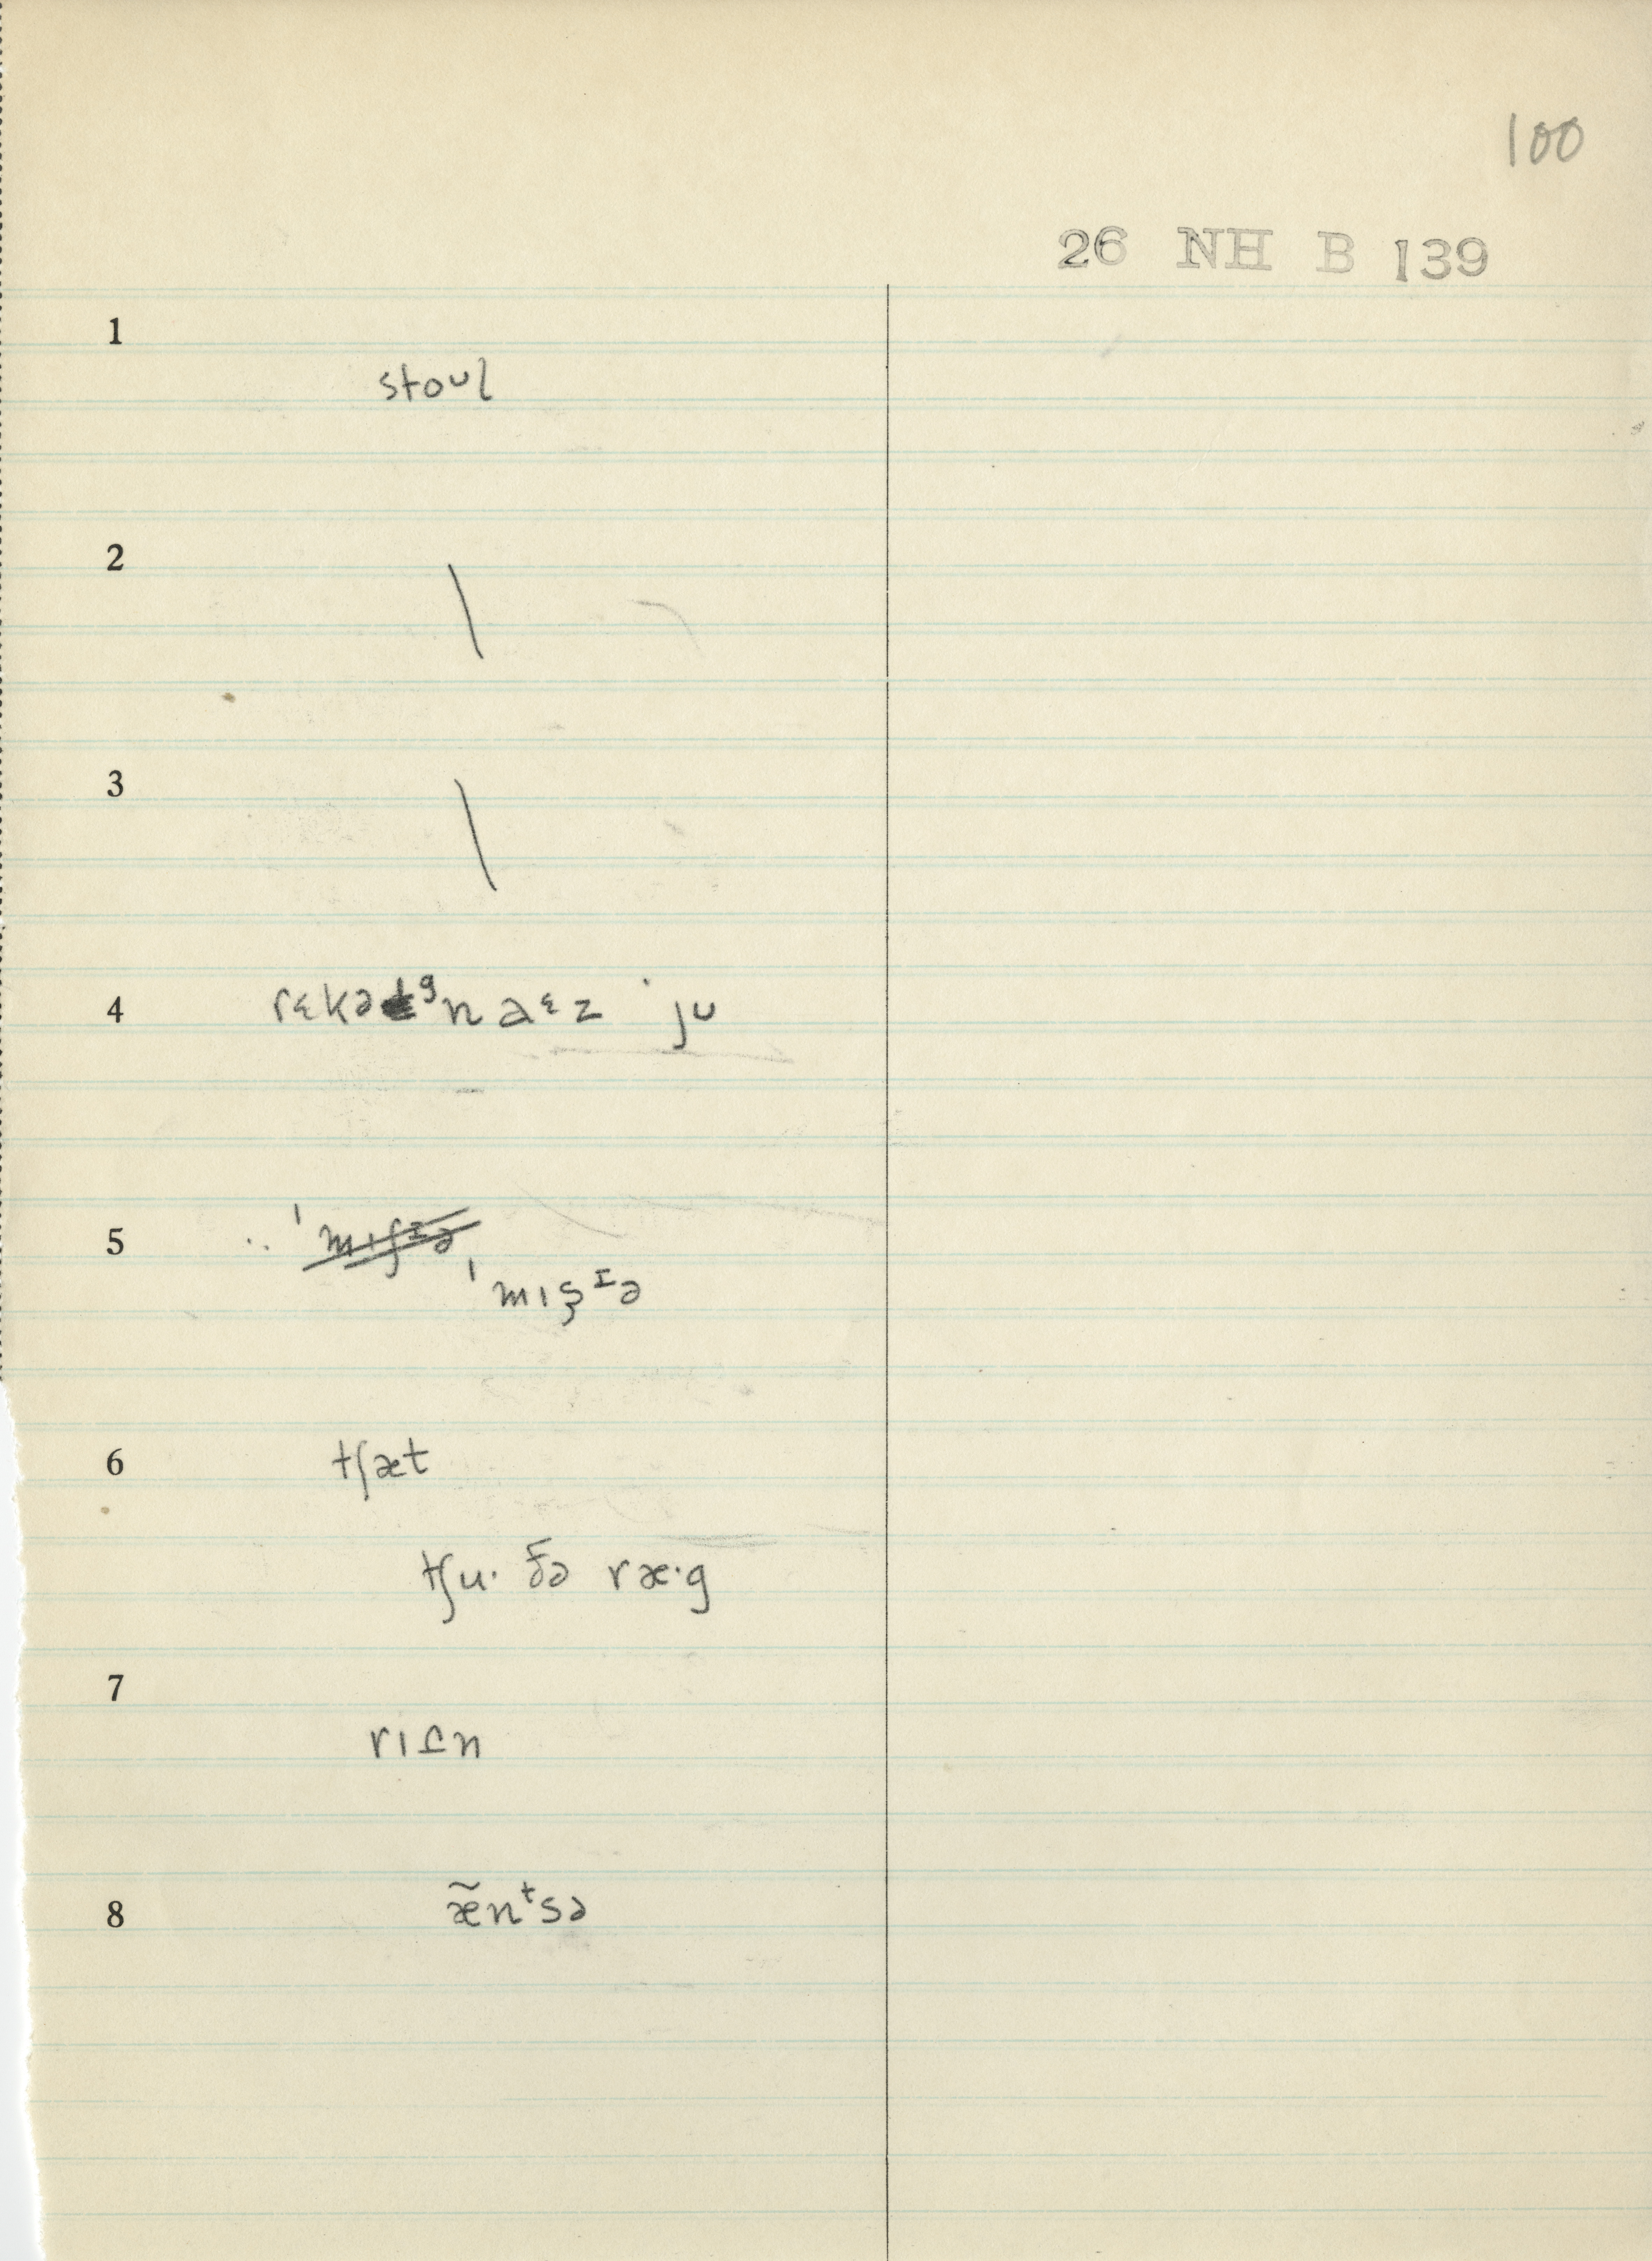 100
26 NH B 139
1
stoᴜl
2 \
3 \
4 rɛkəᵍn aᵋz ˈju
5 ˈmɪʃɪə
ˈmɪʂᴵə
6 tʃæt
tʃu· ðə ræ·g
7
rɪʃn
8 æ̃nᵗsə